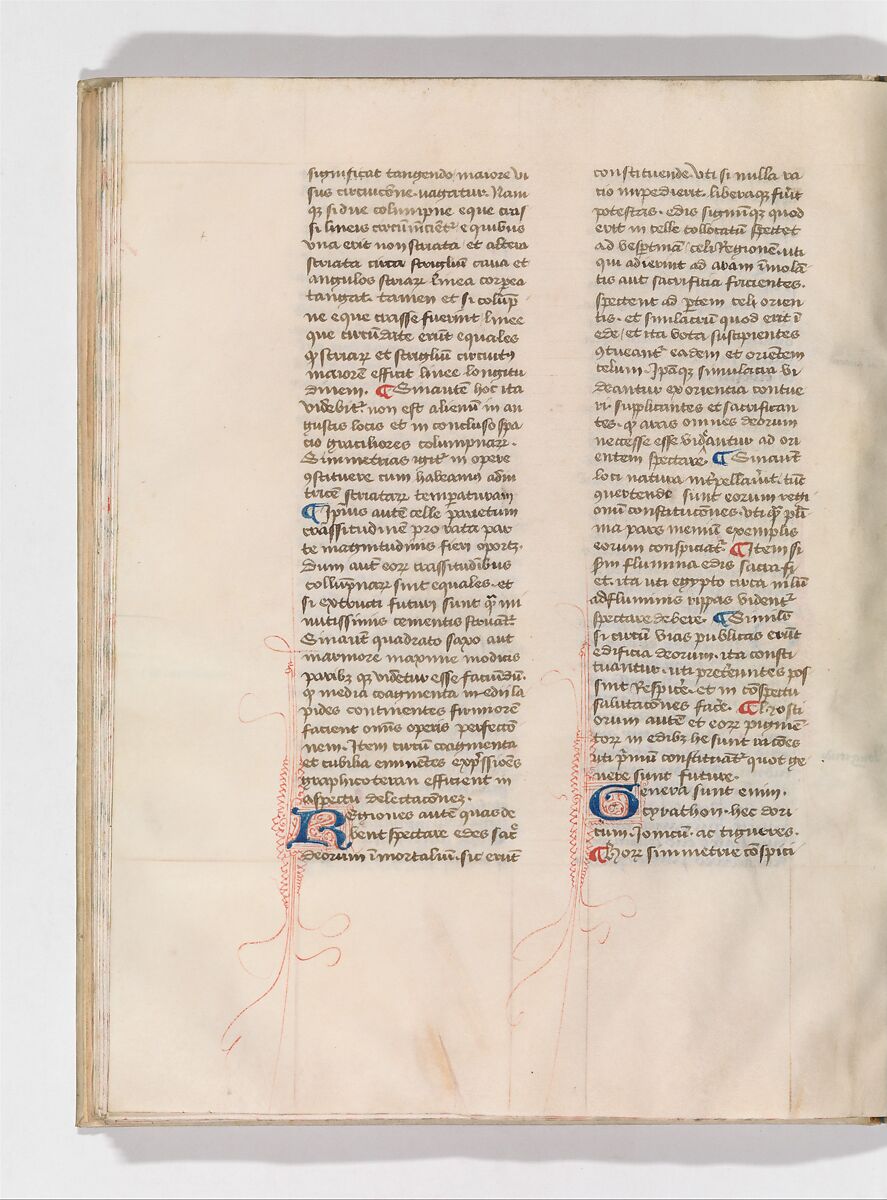 significat tangendo maiore vi
sus circuicōne. vagatur. Nam
qꝫ si due columpne eque cras
si lineis circūmcient᷑ e quibus
vna erit non striata et altera
striata circa striglium caua et
angulos striaꝝ linea corpora
tangat. tamen et si colūp
ne eque crasse fuerint linee
que circūdate erūt equales
ꝙ striaꝝ et striglium circuitꝰ
maiorē efficit linee longitu
dinem. ¶ Sin autē hoc ita
videbit᷑ non est alienū in an
gustis locis et in concluso spa
cio graciliores columpnaꝝ.
Simmetrias igit᷑ in opere
ꝯstituere cum habeamꝰ adiu
tricē striataꝝ temperaturam
¶ Ipiꝰ autē celle parietum
crassitudinē pro rata par
te magnitudinis fieri oportꝫ.
dum aut̄ eoꝝ crassitudibus
collūpnaꝝ sint equales. et
si extructi futuri sunt qͣ mi
nutissimis cementis struant᷑
Sin aut̄ quadrato saxo aut
marmore maxime modicis
paribꝫ qꝫ videtur esse faciūdū.
ꝙ media coagmenta medii la
pides continentes firmiorē
facient omīs operis perfectō
nem. Item circū coagmenta
et cubilia eminētes exp̄ssiōes
graphicoteran efficient in
aspectu delectacōnez.
Regiones autē quas de
bent spectare edes sac᷑
deorum īmortaliū. sic erūt
constituende. vti si nulla ra
cio impedierit. liberaqꝫ fuīt
potestas. edis signūqꝫ quod
erit in celle collocatū spectet
ad vesptinā celi Regionē. uti
qui adierint ad aram īmolā
tis aut sacrificia facientes.
spectent ad ꝑtem celi orien
tis. et simulacrū quod erit ī
ede / et ita vota suscipientes
ꝯtueant᷑ eadem et oriētem
celum. Ipaqꝫ simulacra vi
deantur ex oriencia contue
ri. supplicantes et sacrifican
tes. ꝙ aras omnes deorum
necesse esse videantur ad ori
entem spectare. ¶ Sin aut̄
loci natura int̄pellau̓it. tūc
ꝯuertende sunt eorum regi
onū constitucōnes. vti qͣ plī
ma pars meniū exemplis
eorum conspiciat᷑. ¶ Item si
scm flumina edis sacra fi
et. ita uti egypto circa nilū
ad fluminis rippas vident᷑
spectare debere. ¶ Similr̄
si circū vias publicas erūt
edificia deorum. ita consti
tuantur. uti preteeuntes pos
sint Respicē. et in cōspectu
salutacōnes facē. ¶ hosti
orum autē et eoꝝ pigmē
toꝝ in edibꝫ he sunt racōes
uti p̄mū constituat᷑ quot ge
nere sunt future.
Genera sunt enim.
tcyrathon. hec dori
cum. Ionicū. ac tigueres.
¶ hoꝝ simmetrie cōspici